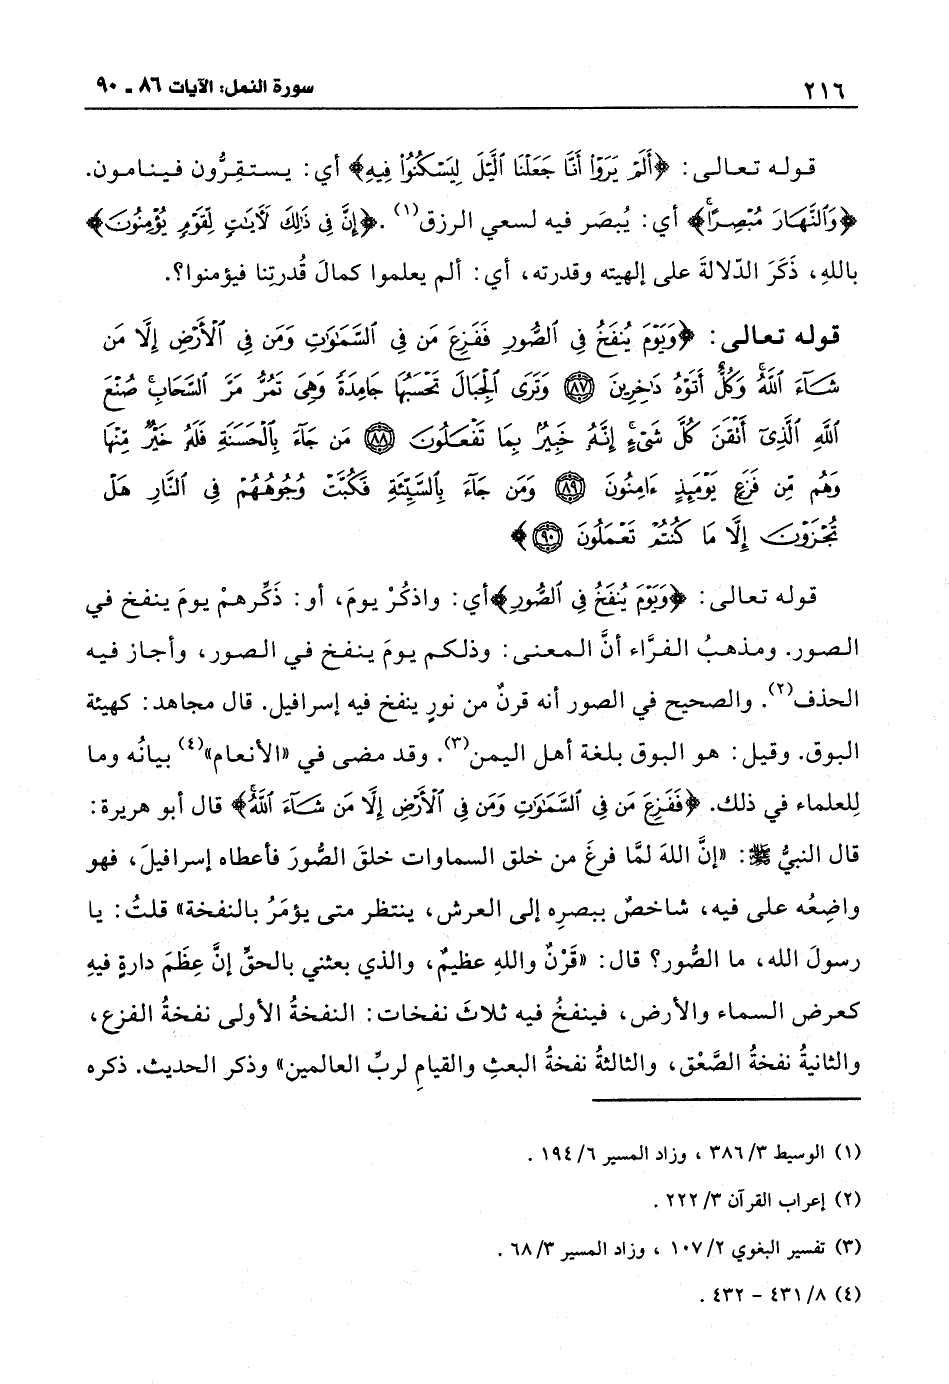 ٢١٦
سورة النمل: الآيات ٨٦ - ٩٠
قوله تعالى: ﴿أَلَمْ يَرَوْا أَنَّا جَعَلْنَا ٱلَّيْلَ لِيَسْكُنُوا۟ فِيهِ﴾ أي: يستقِرُّون فينامون.
﴿وَٱلنَّهَارَ مُبْصِرًا﴾ أي: يُبصَر فيه لسعي الرزق(١). ﴿إِنَّ فِى ذَٰلِكَ لَـَٔايَٰتٍ لِّقَوْمٍ يُؤْمِنُونَ﴾
باللهِ، ذَكَرَ الدّلالةَ على إلهيته وقدرته، أي: ألم يعلموا كمالَ قُدرتِنا فيؤمنوا؟.
قوله تعالى: ﴿وَيَوْمَ يُنفَخُ فِى ٱلصُّورِ فَفَزِعَ مَن فِى ٱلسَّمَٰوَٰتِ وَمَن فِى ٱلْأَرْضِ إِلَّا مَن
شَآءَ ٱللَّهُ ۚ وَكُلٌّ أَتَوْهُ دَٰخِرِينَ ٨٧ وَتَرَى ٱلْجِبَالَ تَحْسَبُهَا جَامِدَةً وَهِىَ تَمُرُّ مَرَّ ٱلسَّحَابِ ۚ صُنْعَ
ٱللَّهِ ٱلَّذِىٓ أَتْقَنَ كُلَّ شَىْءٍ ۚ إِنَّهُۥ خَبِيرٌۢ بِمَا تَفْعَلُونَ ٨٨ مَن جَآءَ بِٱلْحَسَنَةِ فَلَهُۥ خَيْرٌ مِّنْهَا
وَهُم مِّن فَزَعٍ يَوْمَئِذٍ ءَامِنُونَ ٨٩ وَمَن جَآءَ بِٱلسَّيِّئَةِ فَكُبَّتْ وُجُوهُهُمْ فِى ٱلنَّارِ هَلْ
تُجْزَوْنَ إِلَّا مَا كُنتُمْ تَعْمَلُونَ ٩٠﴾
قوله تعالى: ﴿وَيَوْمَ يُنفَخُ فِى ٱلصُّورِ﴾ أي: واذكُرْ يومَ، أو: ذَكِّرهمْ يومَ ينفخ في
الصور. ومذهبُ الفرَّاء أنَّ المعنى: وذلكم يومَ ينفخ في الصور، وأجاز فيه
الحذف(٢). والصحيح في الصور أنه قرنٌ من نورٍ ينفخ فيه إسرافيل. قال مجاهد: كهيئة
البوق. وقيل: هو البوق بلغة أهل اليمن(٣). وقد مضى في «الأنعام»(٤) بيانُه وما
لِلعلماء في ذلك. ﴿فَفَزِعَ مَن فِى ٱلسَّمَٰوَٰتِ وَمَن فِى ٱلْأَرْضِ إِلَّا مَن شَآءَ ٱللَّهُ﴾ قال أبو هريرة:
قال النبيُّ ﷺ: «إنَّ اللهَ لمَّا فرغَ من خلق السماوات خلقَ الصُّورَ فأعطاه إسرافيلَ، فهو
واضِعُه على فيه، شاخصٌ ببصرِه إلى العرش، ينتظر متى يؤمَرُ بالنفخة» قلتُ: يا
رسولَ الله، ما الصُّور؟ قال: «قَرْنٌ واللهِ عظيمٌ، والذي بعثني بالحقِّ إنَّ عِظَمَ دارةٍ فيهِ
كعرض السماء والأرض، فينفخُ فيه ثلاثَ نفخات: النفخةُ الأولى نفخةُ الفزع،
والثانيةُ نفخةُ الصَّعْق، والثالثةُ نفخةُ البعثِ والقيامِ لربِّ العالمين» وذكر الحديث. ذكره
(١) الوسيط ٣/ ٣٨٦ ، وزاد المسير ٦/ ١٩٤ .
(٢) إعراب القرآن ٣/ ٢٢٢ .
(٣) تفسير البغوي ٢/ ١٠٧ ، وزاد المسير ٣/ ٦٨ .
(٤) ٨/ ٤٣١ - ٤٣٢ .